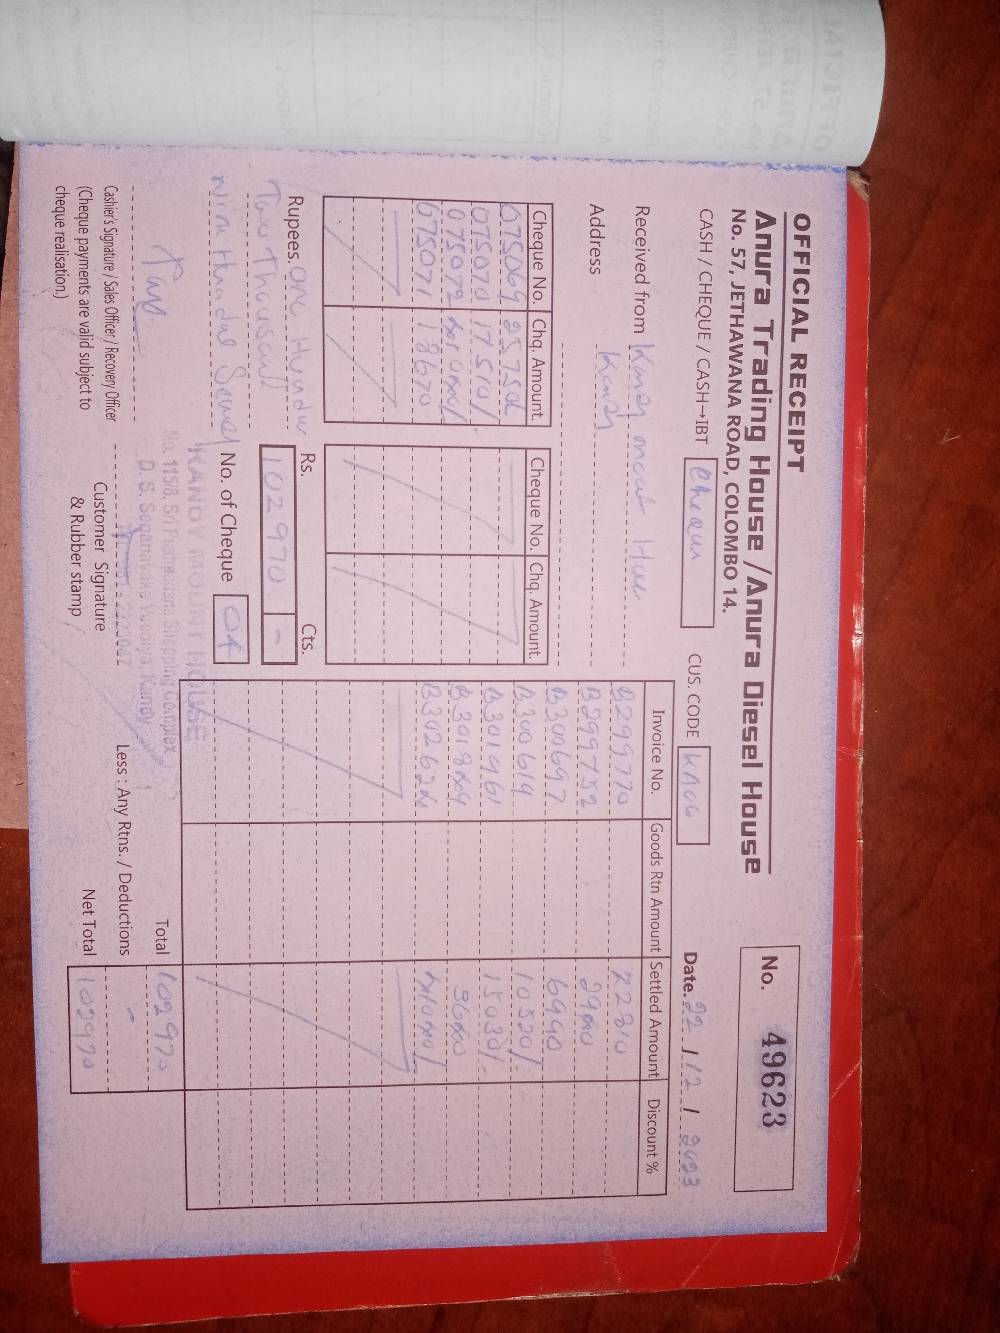 OFFICIAL RECEIPT
Anura Trading House / Anura Diesel House
No. 57, JETHAWANA ROAD, COLOMBO 14.
No. 49623
CASH / CHEQUE / CASH→IBT
CUS. CODE KA06
Date. 22 / 12 / 2023
Received from Kandy
Address Kandy
Cheque No. Chq. Amount. Cheque No. Chq. Amount.
075069 25750
075070 17510/
075072
075071 18670
Invoice No. Goods Rtn Amount Settled Amount Discount %
B299770
B299752
B300697 6990
B300614 10520/
B301961 15030/
B301824
B302624
Rupees. One
Two Thousand
Nine Hundred
Rs. Cts.
102970 -
No. of Cheque 04
Total 102970
Less : Any Rtns. / Deductions -
Net Total 102970
Cashier's Signature / Sales Officer / Recovery Officer
(Cheque payments are valid subject to
cheque realisation.)
Customer Signature
& Rubber stamp
KANDY MOUNT HOUSE
No. 115/8, Sri Pushpadana Shopping Complex
D. S. Senanayake Veediya, Kandy